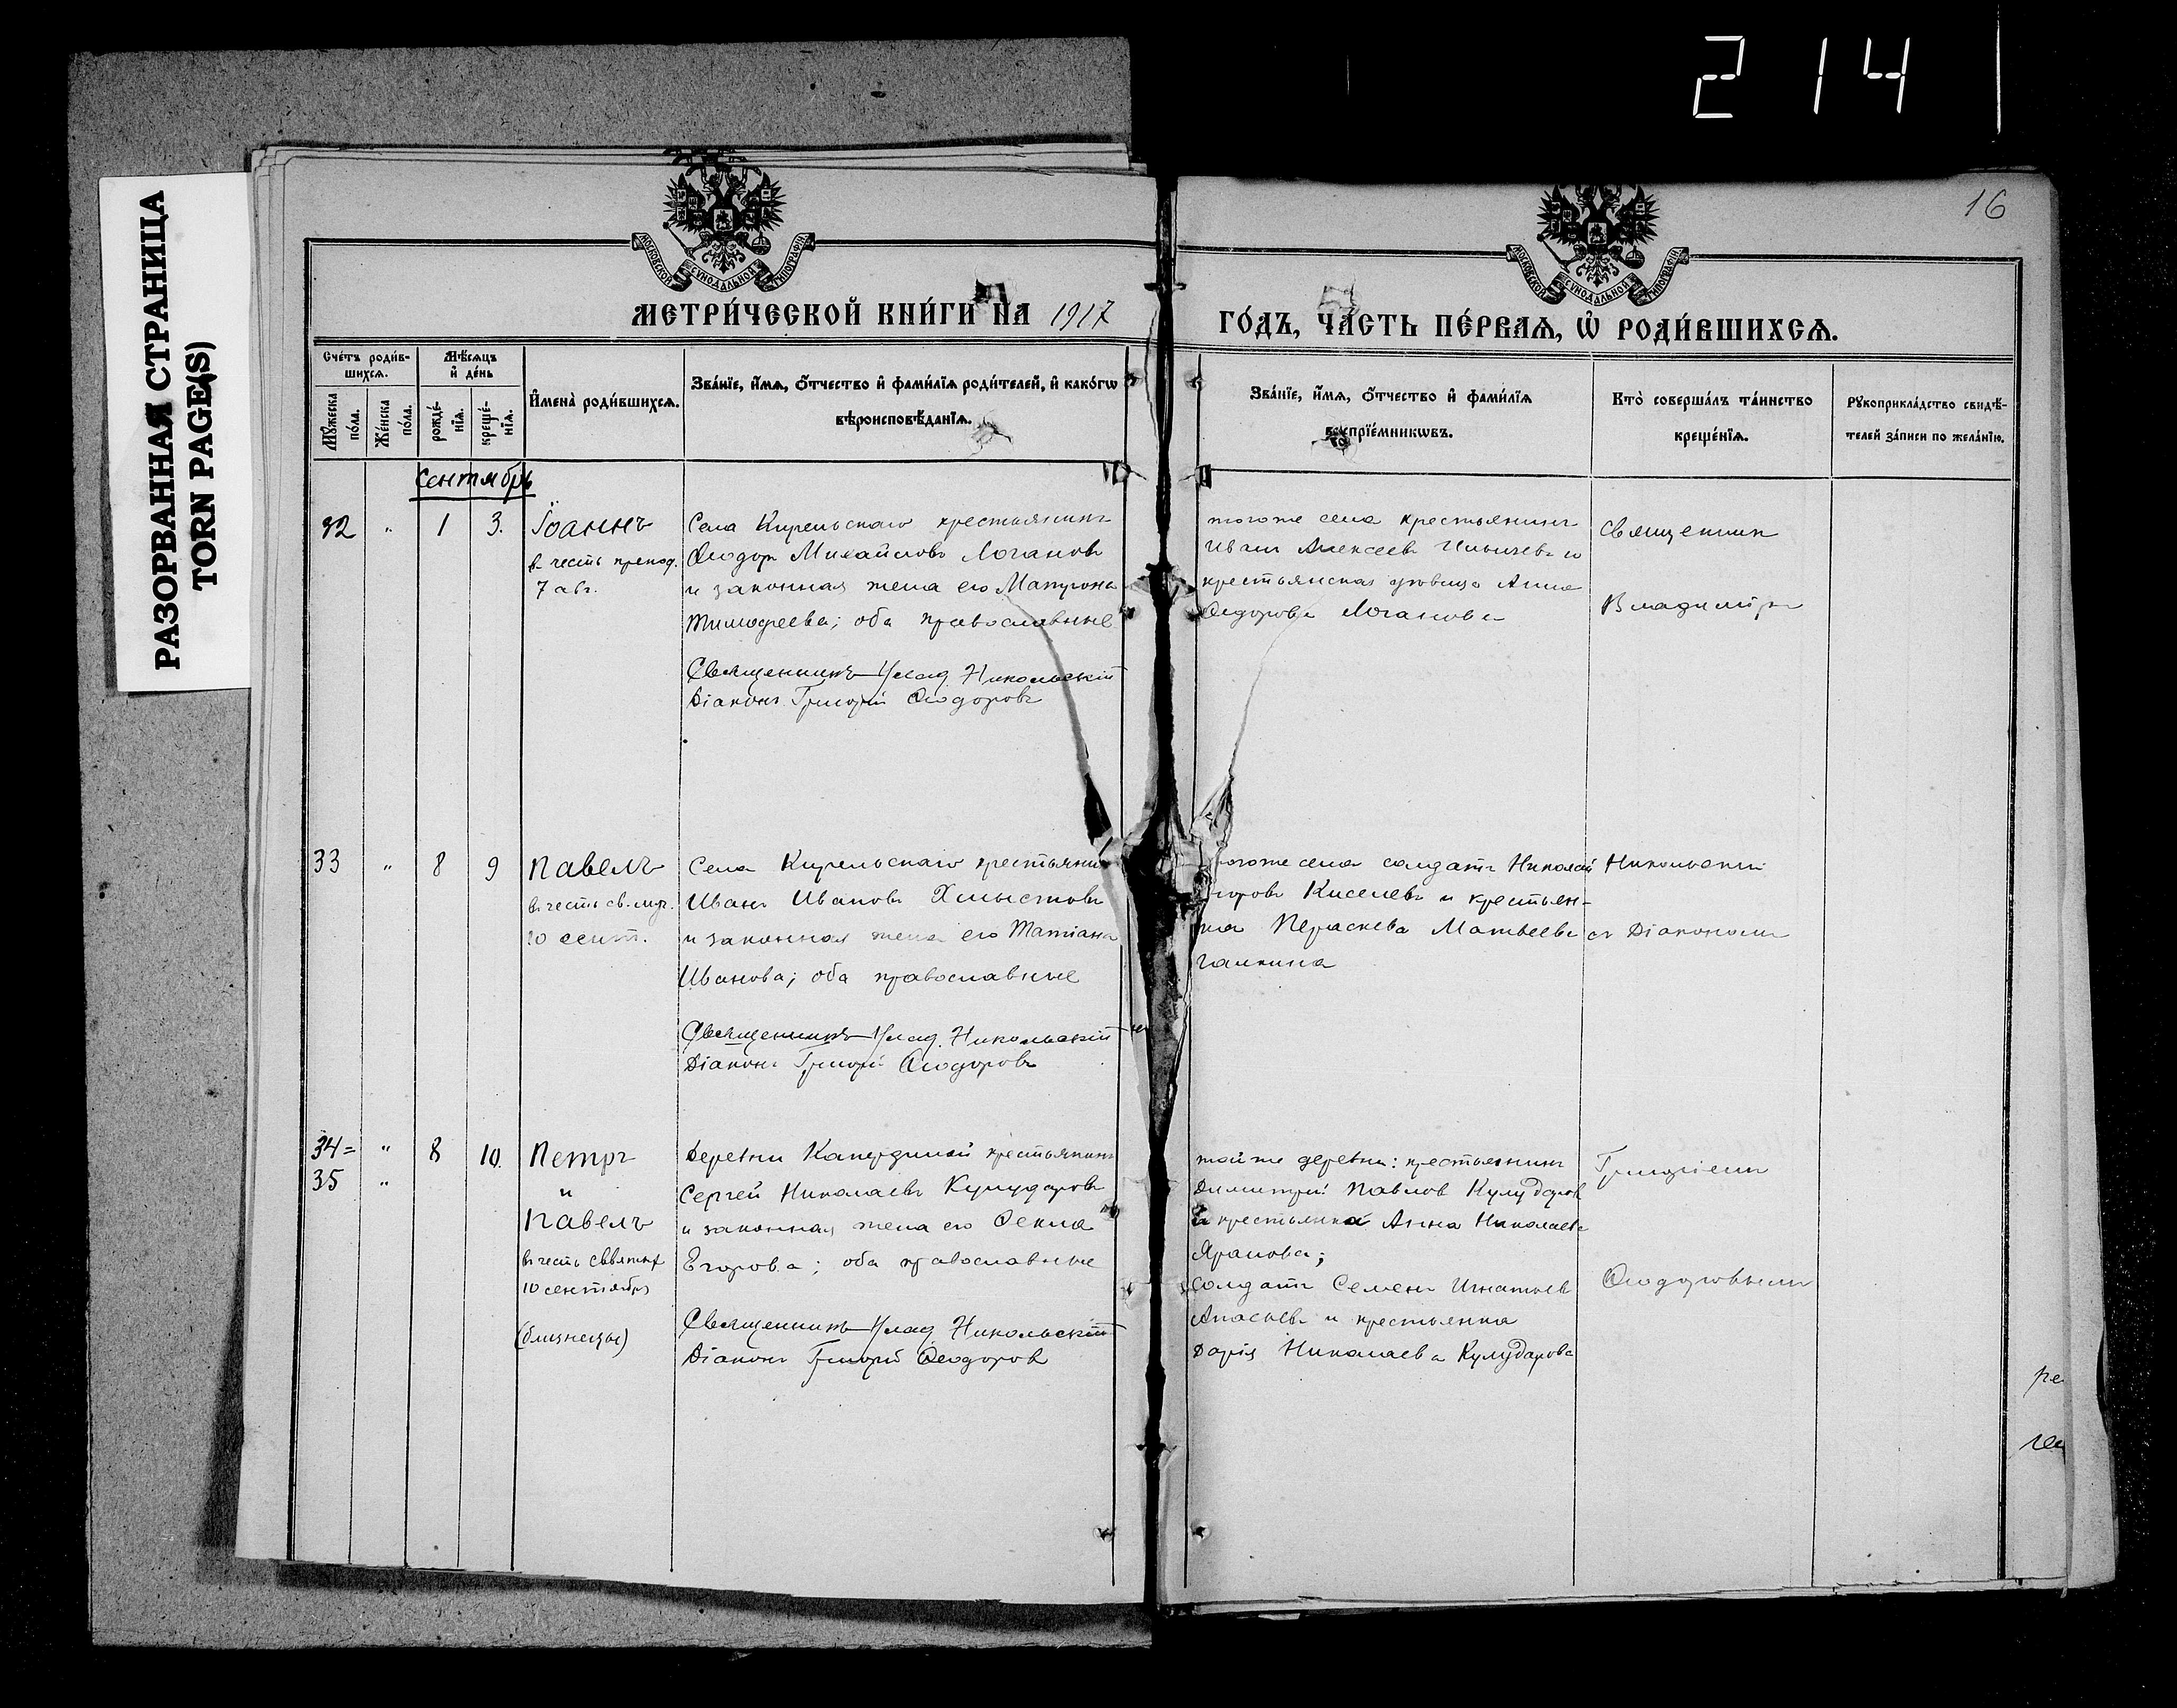 214
РАЗОРВАННАЯ СТРАНИЦА
TORN PAGE(S)
16
МОСКОВСКОЙ СѴНОДАЛЬНОЙ ТИПОГРАФІИ
МОСКОВСКОЙ СѴНОДАЛЬНОЙ ТИПОГРАФІИ
МЕТРИ́ЧЕСКОЙ КНИ́ГИ НА 1917
ГО́ДЪ, ЧА́СТЬ ПЕ́РВАЯ, Ѡ РОДИ́ВШИХСЯ.
Сче́тъ роди́в-
шихся.
Мꙋ́жеска по́ла.
Же́нска по́ла.
Мѣ́сяцъ и де́нь
рожде́-
нія.
креще́-
нія.
Имена̀ роди́вшихся.
Зва́ніе, и́мя, о́тчество и фами́лія роди́телей, и како́гѡ
вѣроисповѣ́данія.
Зва́ніе, и́мя, о́тчество и фами́лія
воспріе́мникѡвъ.
Кто̀ соверша́лъ та́инство
креще́нія.
Рꙋкоприкла́дство свидѣ́-
телей за́писи по жела́нію.
Сентябрь
32 " 1 3. Іоаннъ
въ честь препод.
7 авг.
Села Кирельскаго крестьянинъ
Ѳеодоръ Михайловъ Логановъ
и законная жена его Матрона
Тимофеева; оба православные
Священникъ Влад. Никольскій
Діаконъ Григорій Ѳеодоровъ
тогоже села крестьянинъ
Иванъ Алексеевъ и
крестьянская вдовица Анна
Ѳедорова Логанова
Священник
Владиміръ
33 " 8 9 Павелъ
въ честь св. муч.
10 сент.
Села Кирельскаго крестьянин
Иванъ Ивановъ Хлыстовъ
и законная жена его Татіана
Иванова; оба православные
Священникъ Влад. Никольскій
Діаконъ Григорій Ѳеодоровъ
тогоже села солдатъ Николай
Егоровъ Киселевъ и крестьян-
ка Параскева Матвеева
Галкина
Никольскій
съ Діакономъ
34= " 8 10. Петръ
35 " и
Павелъ
въ честь свѣятых
10 сентября
(близнецы)
Деревни крестьянинъ
Сергей Николаевъ Кулударовъ
и законная жена его Ѳекла
Егорова; оба православные
Священникъ Влад. Никольскій
Діаконъ Григорій Ѳеодоров
тойже деревни: крестьянинъ
Димитрій Павлов Кулударов
и крестьянка Анна Николаева
Ярапова;
солдатъ Семенъ Игнатьев
и крестьянка
Дарія Николаева Кулударова
Григоріемъ
Ѳеодоровымъ
ре